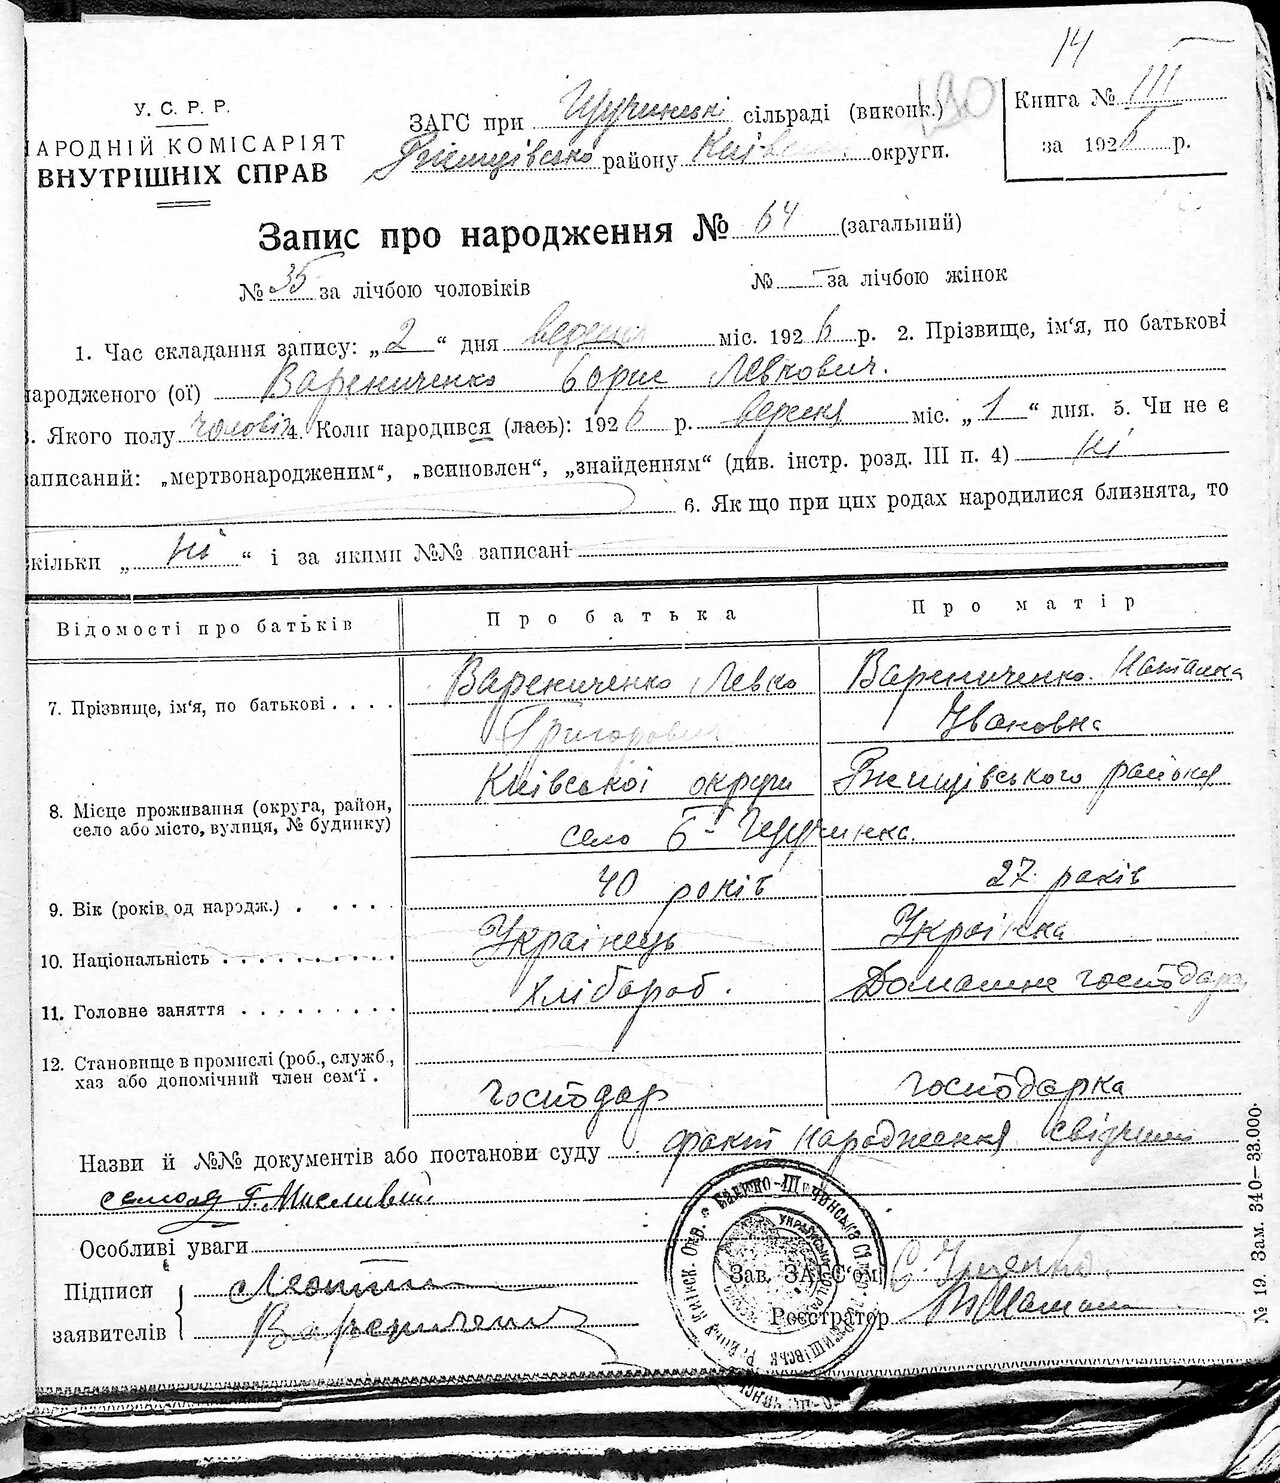 14
У. С. Р. Р.
АРОДНІЙ КОМІСАРІЯТ
ВНУТРІШНІХ СПРАВ
ЗАГС при Щучинські сільраді (виконк.) 190
Ржищівсько району Київськ округи.
Книга № III
за 1926 р.
Запис про народження № 64 (загальний)
№ 35 за лічбою чоловіків № – за лічбою жінок
1. Час складання запису: „2“ дня вересня міс. 1926 р. 2. Прізвище, ім'я, по батькові
народженого (ої) Варениченко Борис Левкович.
3. Якого полу чоловік 4. Коли народився (лась): 1926 р. вересня міс. „1“ дня. 5. Чи не є
записаний: „мертвонародженим“, „всиновлен“, „знайденням“ (див. інстр. розд. III п. 4) ні
6. Як що при цих родах народилися близнята, то
кільки „ні“ і за якими №№ записані
Відомості про батьків Про батька Про матір
7. Прізвище, ім'я, по батькові . . . . Варениченко Левко Григорович Варениченко Наталка Івановна
8. Місце проживання (округа, район,
село або місто, вулиця, № будинку) Київської округи Ржищівського района
село Б-Щучинка.
9. Вік (років од народж.) . . . . . 40 років 27 років
10. Національність . . . . . . . . . . Українець Українка
11. Головне заняття . . . . . . . . . Хлібороб. Домашне господар
12. Становище в промислі (роб., служб.,
хаз або допомічний член сем'ї . господар господарка
Назви й №№ документів або постанови суду факт народження свідчит
Г. Мисливий
Особливі уваги
Підписи
заявителів
Варениченко
Зав. ЗАГС'ом
Реєстратор
№ 19. Зам. 340–33.000.